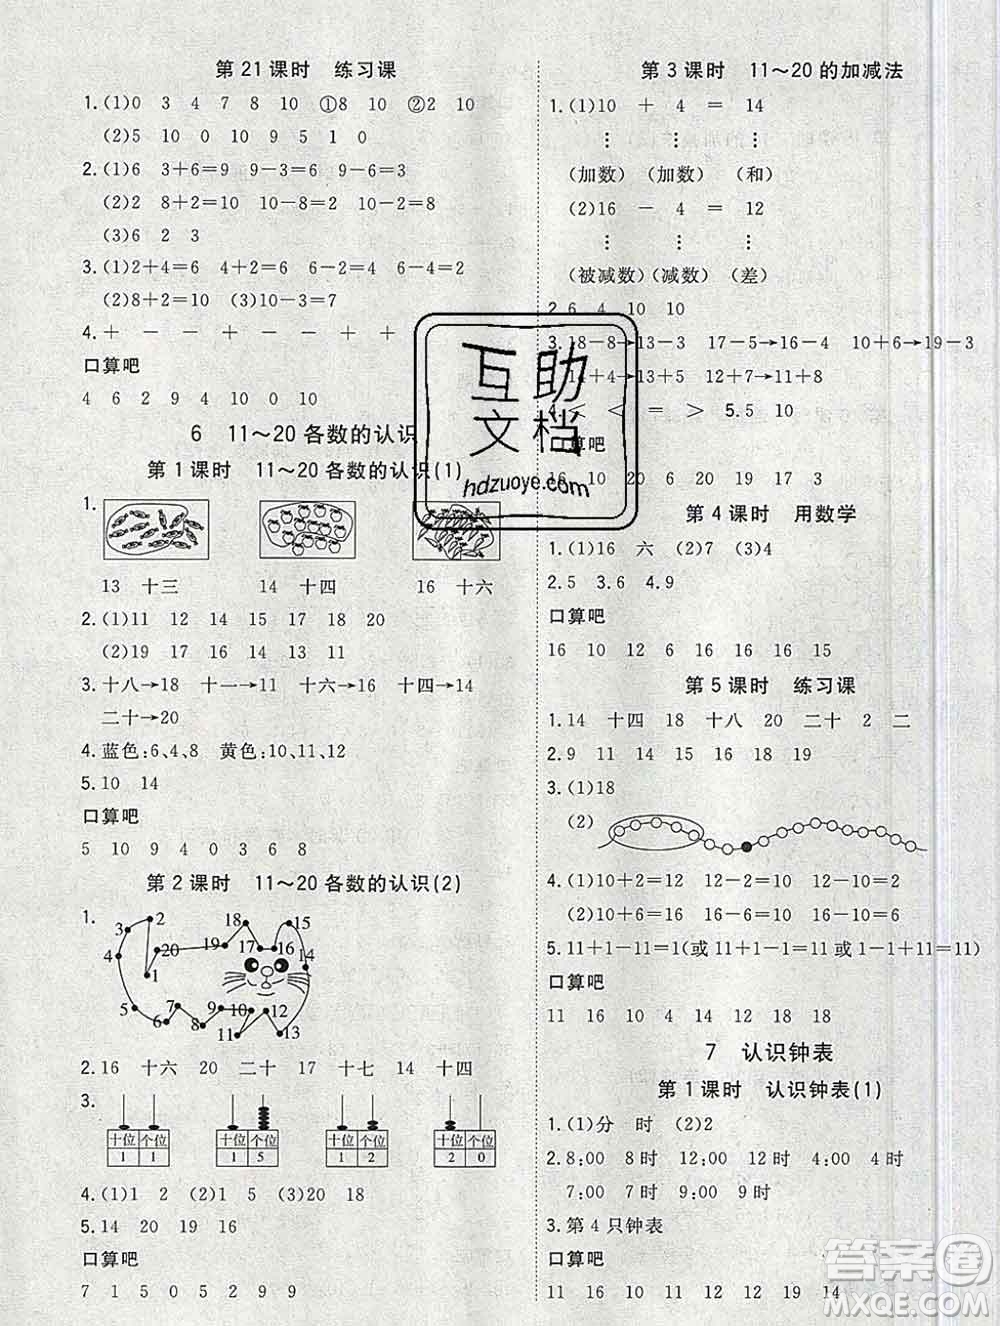 第21课时 练习课
1.(1)0 3 4 7 8 10 ①8 10 ②2 10
(2)5 10 0 10 9 5 1 0
2.(1)6 3+6=9 9-3=6 9-6=3
(2)2 8+2=10 10-2=8
(3)6 2 3
3.(1)2+4=6 4+2=6 6-4=2
(2)8+2=10 (3)10-3=7
4.+ - - + - - + +
口算吧
4 6 2 9 4 10 0 10
6 11～20各数的认识
第1课时 11～20各数的认识(1)
1.
13 十三 14 十四 16 十六
2.(1)11 12 14 15 17 18 20
(2)19 18 17 15 14 12 11
3.十八→18 十一→11 十六→16 十四→14
二十→20
4.蓝色:6、4、8 黄色:10、11、12
5.10 14
口算吧
5 10 9 4 0 3 6 8
第2课时 11～20各数的认识(2)
1.
2 18 15
3 19 17 16 14
4 20
1
5 7 9 10 12
6 8 11 13
2.16 十六 20 二十 17 十七 14 十四
3.
十位 个位 十位 个位 十位 个位 十位 个位
1 1 1 5 1 2 2 0
4.(1)1 2 (2)1 5 (3)20 18
5.14 20 19 16
口算吧
7 1 5 0 5 2 9 9
第3课时 11～20的加减法
1.(1)10 + 4 = 14
⋮ ⋮ ⋮
(加数) (加数) (和)
(2)16 - 4 = 12
⋮ ⋮ ⋮
(被减数) (减数) (差)
2.6 4 10 10
3.18-8→13-3 17-5→16-4 10+6→19-3
14+4→13+5 17+2→11+8
4.< < = > 5.5 10
口算吧
16 10 4 20 15 17 10 18
第4课时 用数学
1.(1)16 六 (2)7 (3)4
2.5 3.6 4.9
口算吧
16 10 12 6 16 16 16 15
第5课时 练习课
1.14 十四 18 十八 20 二十 2 二
2.9 11 14 15 16 18
3.(1)18
(2)
4.(1)10+2=12 12-2=10 12-10=2
(2)10+6=16 16-6=10 16-10=6
5.11+1-11=1(或 11+1-1=11 或 1-1+11=11)
口算吧
11 16 10 4 14 12 18 18
7 认识钟表
第1课时 认识钟表(1)
1.(1)分 时 (2)2
2.8:00 8时 12:00 12时 4:00 4时
7:00 7时 9:00 9时
3.第4只钟表
口算吧
11 16 10 12 12 19 14
互助
文档
hdzuoye.com
答案圈
MXQE.COM